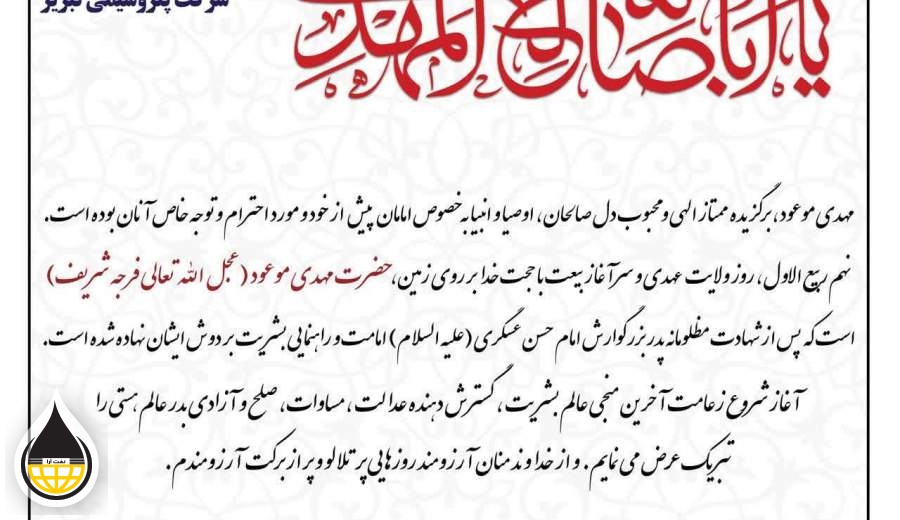 شرکت پتروشیمی تبریز
یا اباصالح المهدی
مهدی موعود، برگزیده ممتاز الهی و محبوب دل صالحان، اوصیا و انبیا به خصوص امامان پیش از خود و مورد احترام و توجه خاص آنان بوده است.
نهم ربیع الاول، روز ولایت عهدی و سرآغاز بیعت با حجت خدا بر روی زمین، حضرت مهدی موعود (عجل الله تعالی فرجه شریف)
است که پس از شهادت مظلومانه پدر بزرگوارش امام حسن عسگری (علیه السلام) امامت و راهنمایی بشریت بر دوش ایشان نهاده شده است.
آغاز شروع زعامت آخرین منجی عالم بشریت، گسترش دهنده عدالت، مساوات، صلح و آزادی بدر عالم هستی را
تبریک عرض می نمایم. و از خداوند منان آرزومند روزهایی پر تلالو و پر از برکت آرزومندم.
نفت آرا